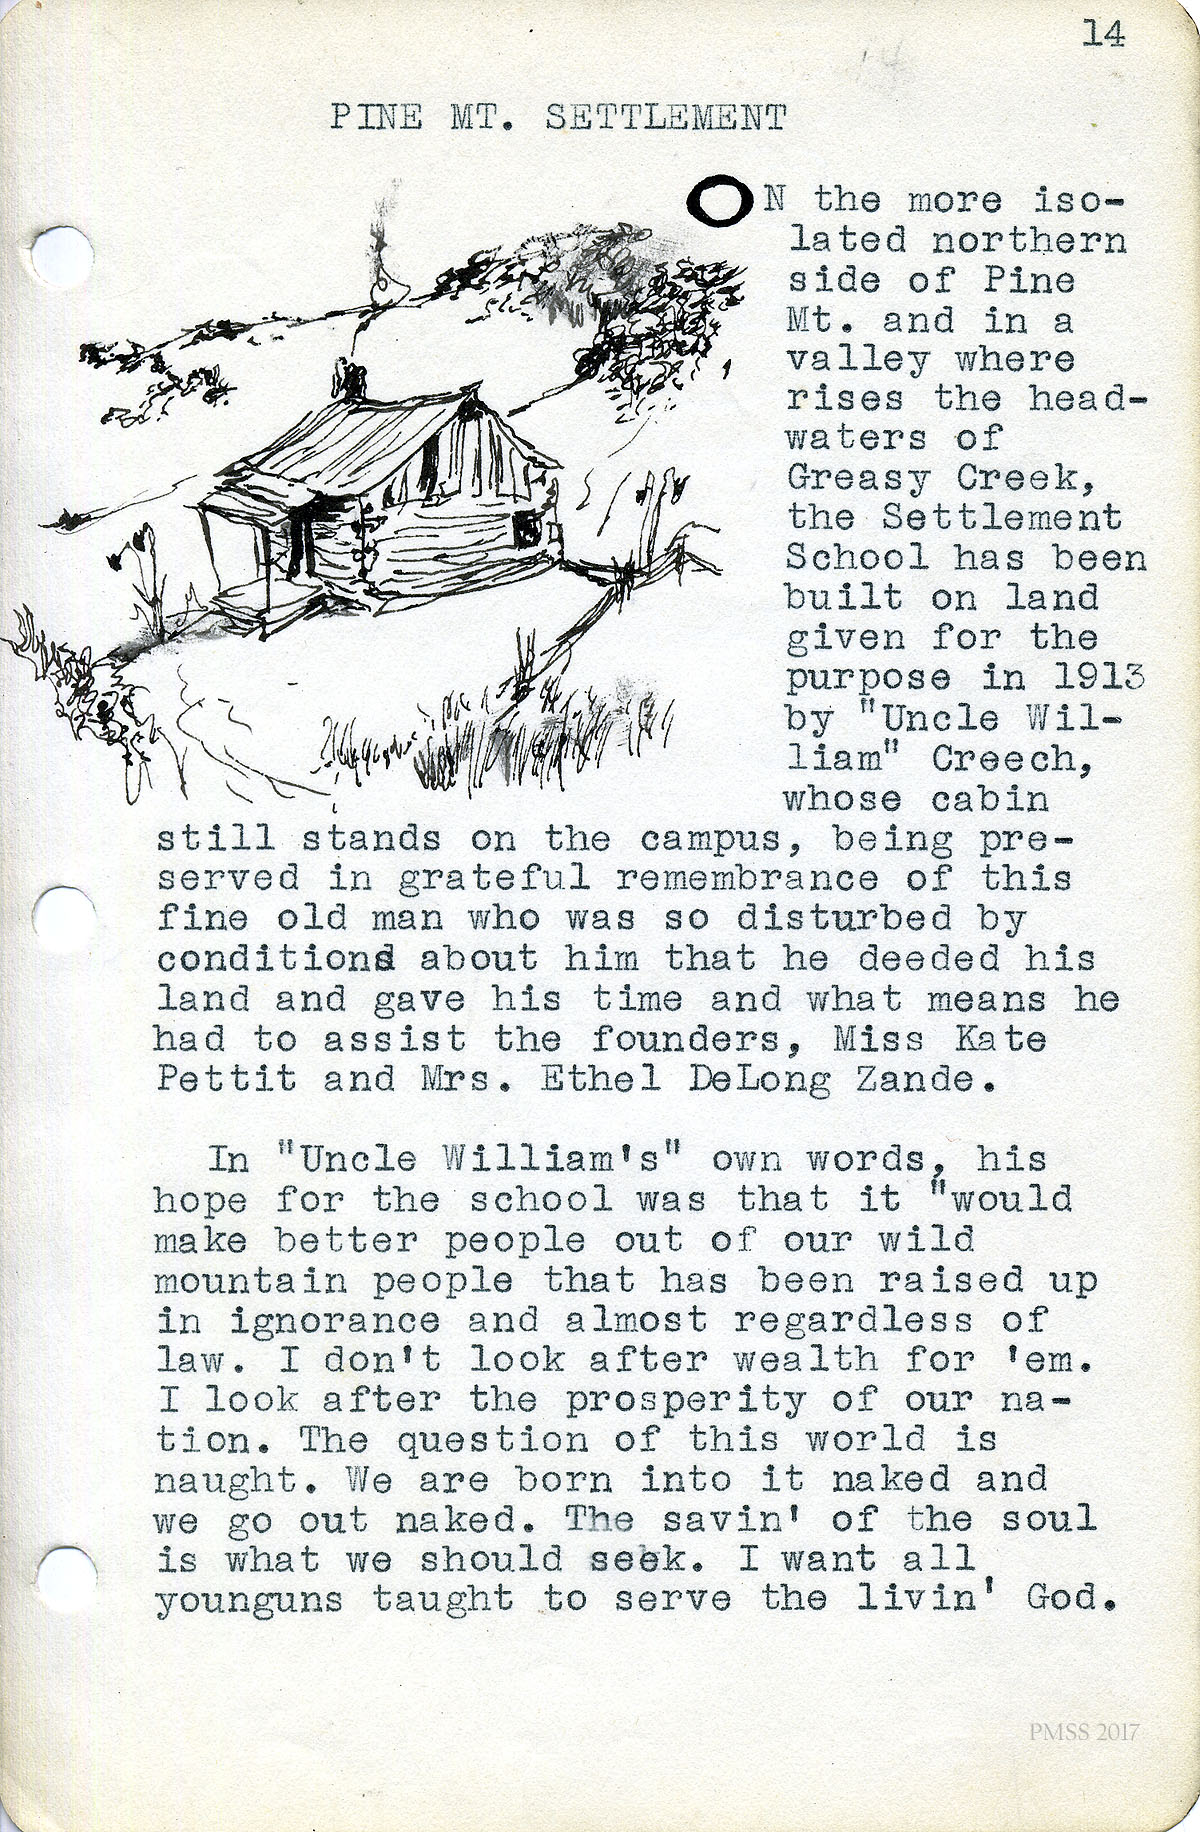 14
PINE MT. SETTLEMENT
ON the more iso-
lated northern
side of Pine
Mt. and in a
valley where
rises the head-
waters of
Greasy Creek,
the Settlement
School has been
built on land
given for the
purpose in 1913
by "Uncle Wil-
liam" Creech,
whose cabin
still stands on the campus, being pre-
served in grateful remembrance of this
fine old man who was so disturbed by
conditions about him that he deeded his
land and gave his time and what means he
had to assist the founders, Miss Kate
Pettit and Mrs. Ethel DeLong Zande.
In "Uncle William's" own words, his
hope for the school was that it "would
make better people out of our wild
mountain people that has been raised up
in ignorance and almost regardless of
law. I don't look after wealth for 'em.
I look after the prosperity of our na-
tion. The question of this world is
naught. We are born into it naked and
we go out naked. The savin' of the soul
is what we should seek. I want all
younguns taught to serve the livin' God.
PMSS 2017